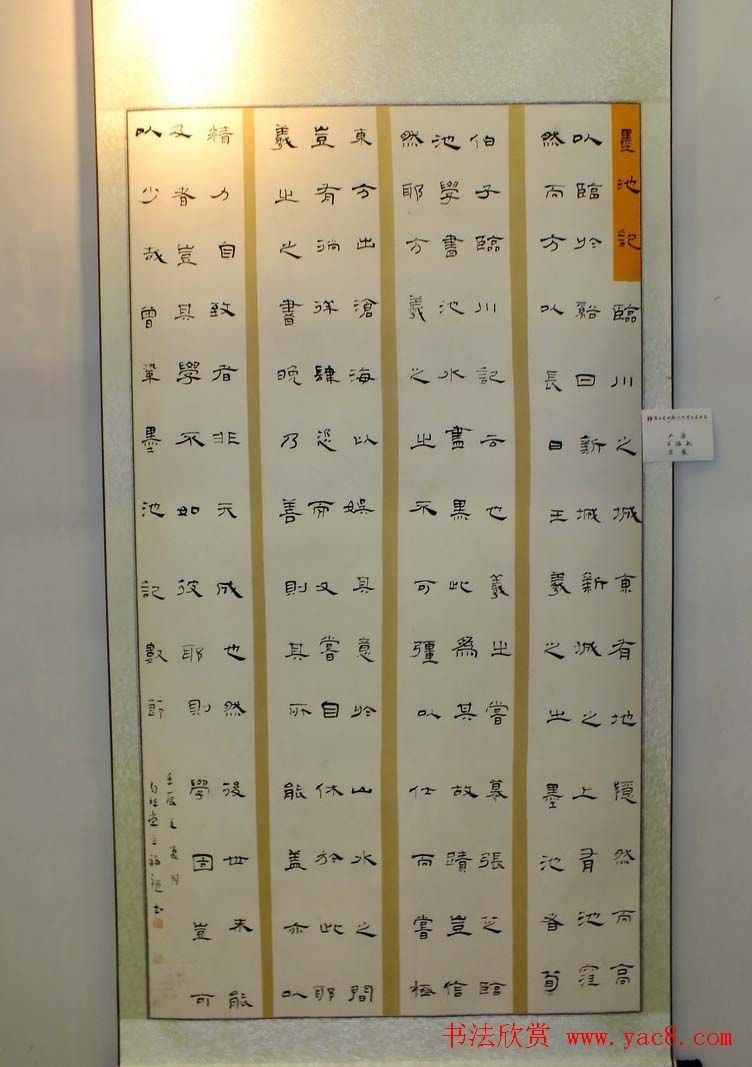 墨池記臨川之城東有地隱然而高
以臨於谿曰新城新城之上有池窪
然而方以長曰王羲之之墨池者荀
伯子臨川記云也羲之嘗慕張芝臨
池學書池水盡黑此為其故蹟豈信
然耶方羲之之不可彊以仕而嘗極
東方出滄海以娛其意於山水之間
豈有徜徉肆恣而又嘗自休於此耶
羲之之書晚乃善則其所能蓋亦以
精力自致者非天成也然後世未能
及者豈其學不如彼耶則學固豈可
以少哉曾鞏墨池記數節
壬辰之夏月
书法欣赏 www.yac8.com